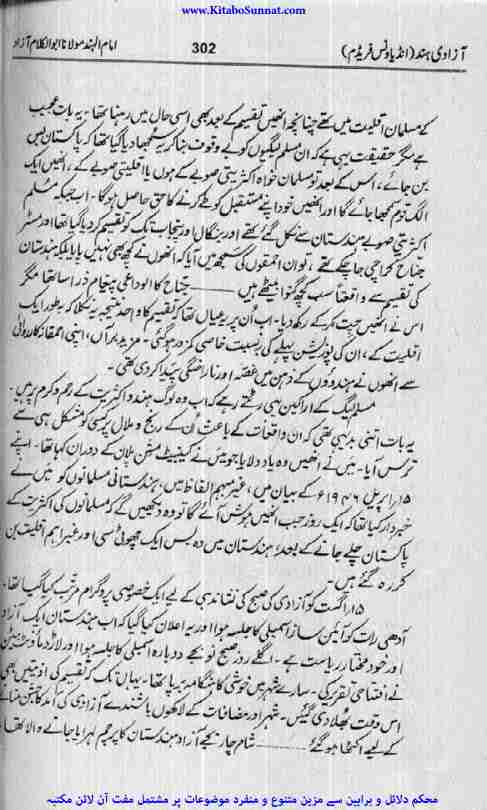 www.KitaboSunnat.com
آزادی ہند (انڈیا ونس فریڈم) 302 امام الہند مولانا ابوالکلام آزاد
کے مسلمان اقلیت میں تھے چنانچہ انھیں تقسیم کے بعد بھی اسی حال میں رہنا تھا۔ یہ بات عجیب
ہے مگر حقیقت یہی ہے کہ ان مسلم لیگیوں کو بے وقوف بنا کر یہ سمجھا دیا گیا تھا کہ پاکستان بس
بن جائے، اس کے بعد تو مسلمان خواہ اکثریتی صوبے کے ہوں یا اقلیتی صوبے کے، انھیں ایک
الگ قوم سمجھا جائے گا اور انھیں خود اپنے مستقبل کو طے کرنے کا حق حاصل ہوگا۔ اب جبکہ مسلم
اکثریتی صوبے ہندستان سے نکل گئے تھے اور بنگال اور پنجاب تک کو تقسیم کر دیا گیا تھا اور مسٹر
جناح کراچی جا چکے تھے، تو ان احمقوں کی سمجھ میں آیا کہ انھوں نے کچھ بھی نہیں پایا بلکہ ہندستان
کی تقسیم سے واقعتاً سب کچھ گنوا بیٹھے ہیں ـــــــ جناح کا الوداعی پیغام ذرا سا تھا مگر
اس نے انھیں چت کر کے رکھ دیا۔ اب ان پر یہ عیاں تھا کہ تقسیم کا واحد نتیجہ یہ نکلا کہ بطور ایک
اقلیت کے، ان کی پوزیشن پہلے کی بہ نسبت خاصی کمزور ہوگئی۔ مزید برآں، اپنی احمقانہ کارروائی
سے انھوں نے ہندوؤں کے ذہن میں غصہ اور ناراضگی پیدا کر دی تھی۔
مسلم لیگ کے اراکین یہی رٹتے رہے کہ اب وہ لوگ ہندو اکثریت کے رحم و کرم پر ہیں۔
یہ بات اتنی بدیہی تھی کہ ان واقعات کے باعث ان کے رنج و ملال پر کسی کو مشکل ہی سے
ترس آیا۔ میں نے انھیں وہ یاد دلایا جو میں نے کیبینیٹ مشن پلان کے دوران کہا تھا۔ اپنے
۱۵؍ اپریل ۱۹۴۶ء کے بیان میں، غیر مبہم الفاظ میں، ہندستانی مسلمانوں کو میں نے
خبردار کیا تھا کہ ایک روز جب انھیں ہوش آئے گا تو وہ دیکھیں گے کہ مسلمانوں کی اکثریت کے
پاکستان چلے جانے کے بعد؛ ہندستان میں وہ بس ایک چھوٹی سی اور غیر اہم اقلیت بن
کر رہ گئے ہیں۔
۱۵؍ اگست کو آزادی کی صبح کی نشاندہی کے لیے ایک خصوصی پروگرام مرتب کیا گیا تھا۔
آدھی رات کو آئین ساز اسمبلی کا جلسہ ہوا اور یہ اعلان کیا گیا کہ اب ہندستان ایک آزاد
اور خود مختار ریاست ہے۔ اگلے روز صبح نو بجے دوبارہ اسمبلی کا جلسہ ہوا اور لارڈ ماؤنٹ بیٹن
نے افتتاحی تقریر کی۔ سارے شہر میں خوشی کا ہنگامہ برپا تھا۔ یہاں تک کہ تقسیم کی اذیتیں بھی
اس وقت بھلا دی گئیں۔ شہر اور مضافات کے لاکھوں باشندے آزادی کی آمد کا جشن منانے
کے لیے اکٹھا ہو گئے ـــــــ شام چار بجے آزاد ہندستان کا پرچم لہرایا جانے والا تھا۔
محکم دلائل و براہین سے مزین متنوع و منفرد موضوعات پر مشتمل مفت آن لائن مکتبہ